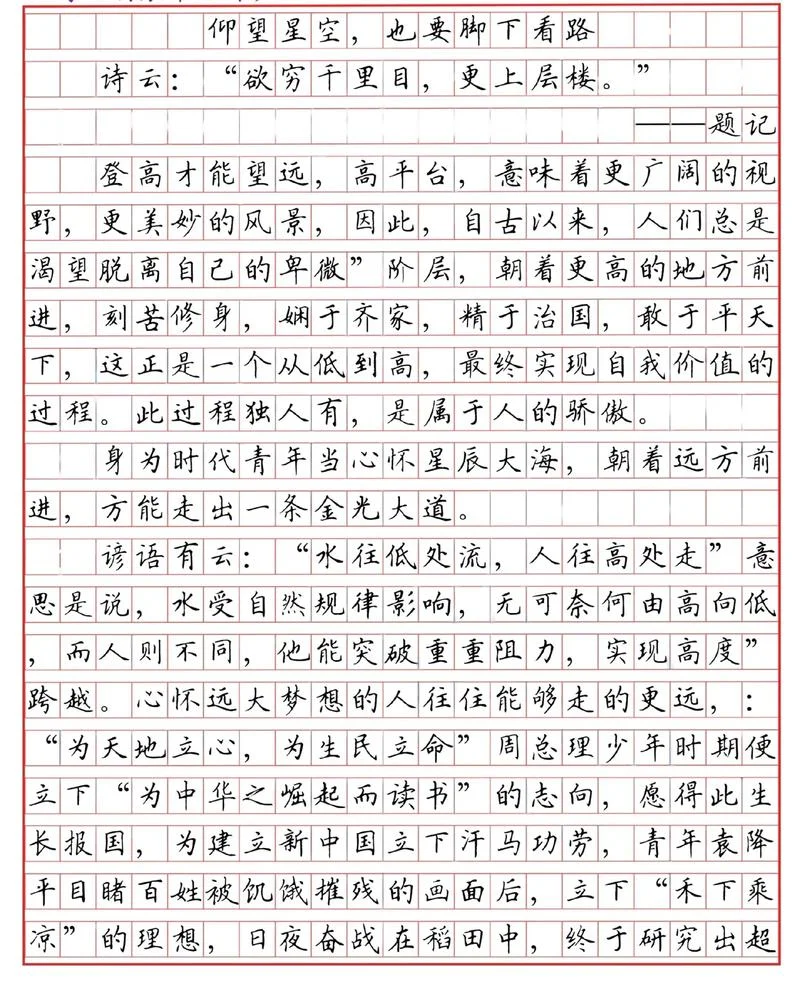 仰望星空，也要脚下看路
诗云：“欲穷千里目，更上层楼。”
——题记
登高才能望远，高平台，意味着更广阔的视
野，更美妙的风景，因此，自古以来，人们总是
渴望脱离自己的卑微”阶层，朝着更高的地方前
进，刻苦修身，娴于齐家，精于治国，敢于平天
下，这正是一个从低到高，最终实现自我价值的
过程。此过程独人有，是属于人的骄傲。
身为时代青年当心怀星辰大海，朝着远方前
进，方能走出一条金光大道。
谚语有云：“水往低处流，人往高处走”意
思是说，水受自然规律影响，无可奈何由高向低
，而人则不同，他能突破重重阻力，实现高度”
跨越。心怀远大梦想的人往住能够走的更远，：
“为天地立心，为生民立命”周总理少年时期便
立下“为中华之崛起而读书”的志向，愿得此生
长报国，为建立新中国立下汗马功劳，青年袁降
平目睹百姓被饥饿摧残的画面后，立下“禾下乘
凉”的理想，日夜奋战在稻田中，终于研究出超